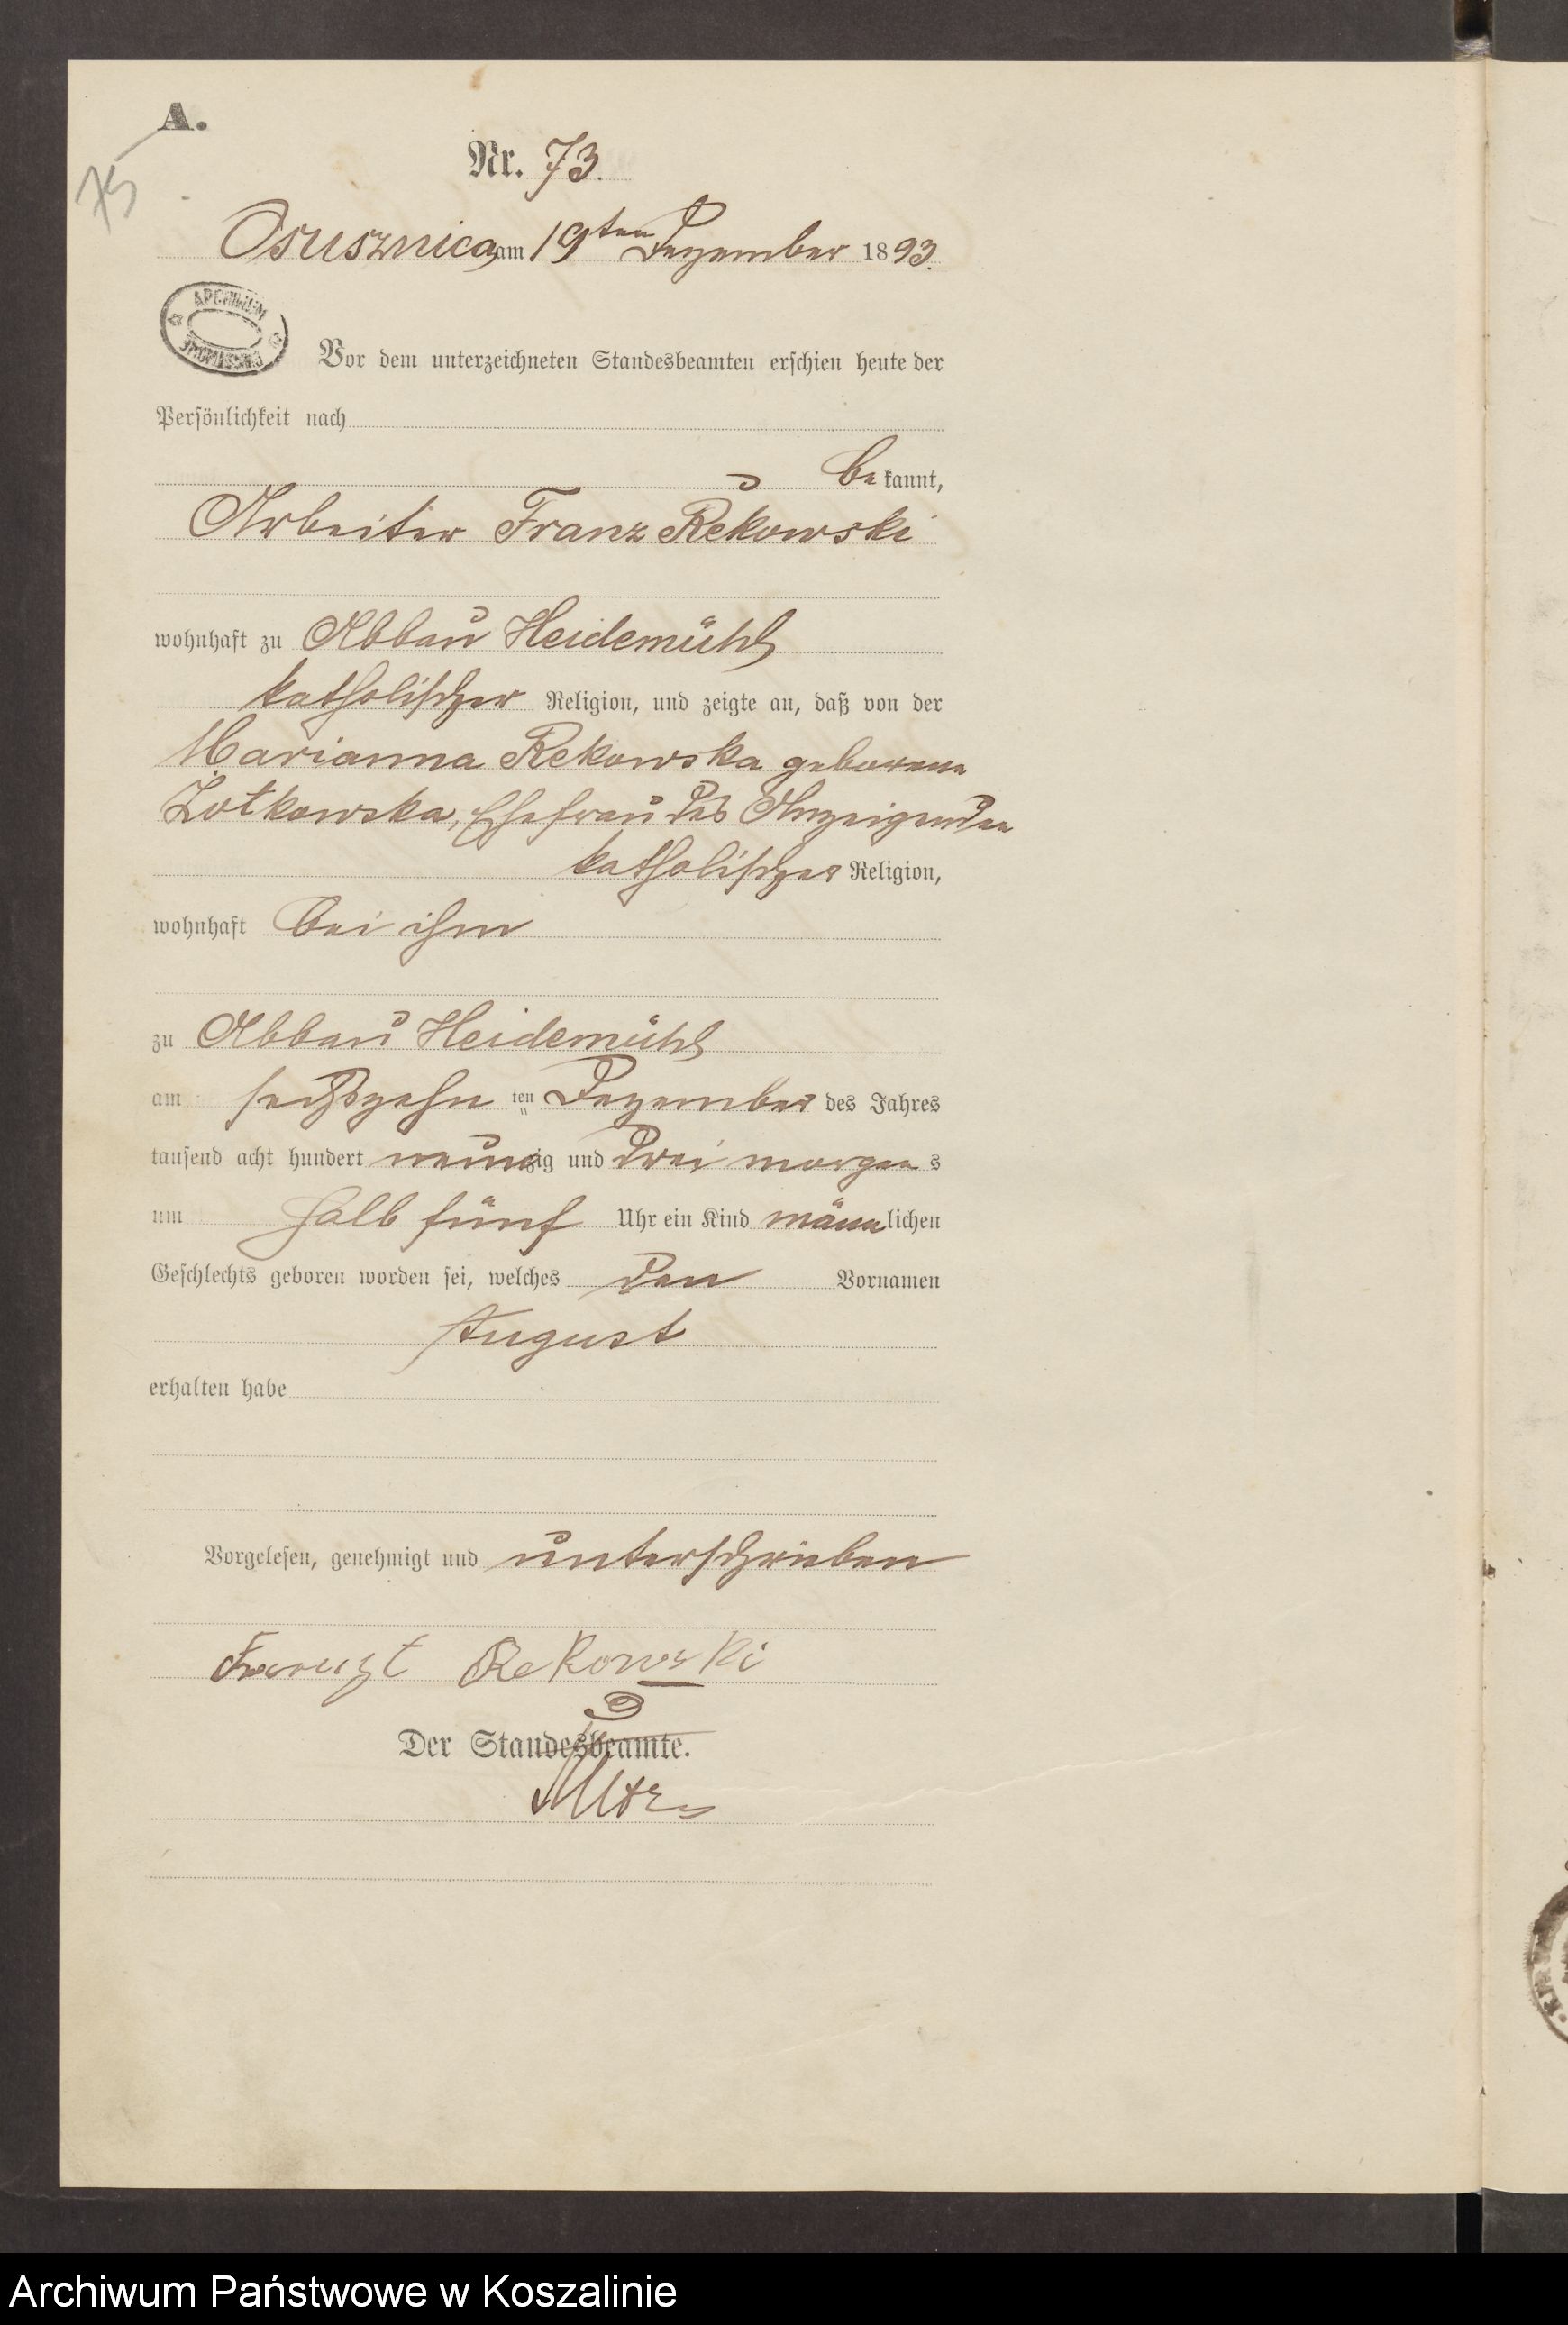 A.
75
Nr. 73.
Osusznica, am 19ten Dezember 1893.
ARCHIWUM
Vor dem unterzeichneten Standesbeamten erschien heute der
Persönlichkeit nach
bekannt,
Arbeiter Franz Rekowski
wohnhaft zu Abbau Heidemühl
katholischer Religion, und zeigte an, daß von der
Marianna Rekowska geborene
Żołkowska, Ehefrau des Anzeigenden
katholischer Religion,
wohnhaft bei ihm
zu Abbau Heidemühl
am sechszehn ten Dezember des Jahres
tausend acht hundert neunzig und drei morgens
um halb fünf Uhr ein Kind männlichen
Geschlechts geboren worden sei, welches den Vornamen
August
erhalten habe
Vorgelesen, genehmigt und unterschrieben
Rekowski
Der Standesbeamte.
Archiwum Państwowe w Koszalinie